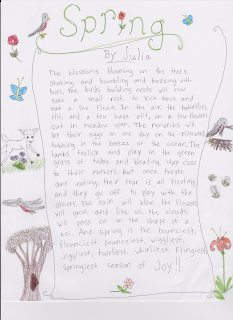 Spring
By Julia
The blossoms blooming on the trees,
shaking and bumbling and buzzing with
bees, the birds building nests will now
take a small rest, to kick back and
a sea feast. In the air the butterflies
flit, and a few take a sit, on a few flowers
out in meadow open. The monarchs will
lay their eggs in one day on the milkweed
bobbing in the breeze of the ocean. The
lambs frolick and play in the green
grass it today, and bleating, stay close
to their mothers. But once they're
done eating, their fear is all fleeting
and they go off to play with the
others. The rain will then the flowers
will grow and like so, the clouds
will pass on in the shape of a
koi. And spring is the bounciest,
flounciest, pounceiest, wiggliest,
jiggliest, twirliest, whirliest, flingiest,
springiest season of Joy!!